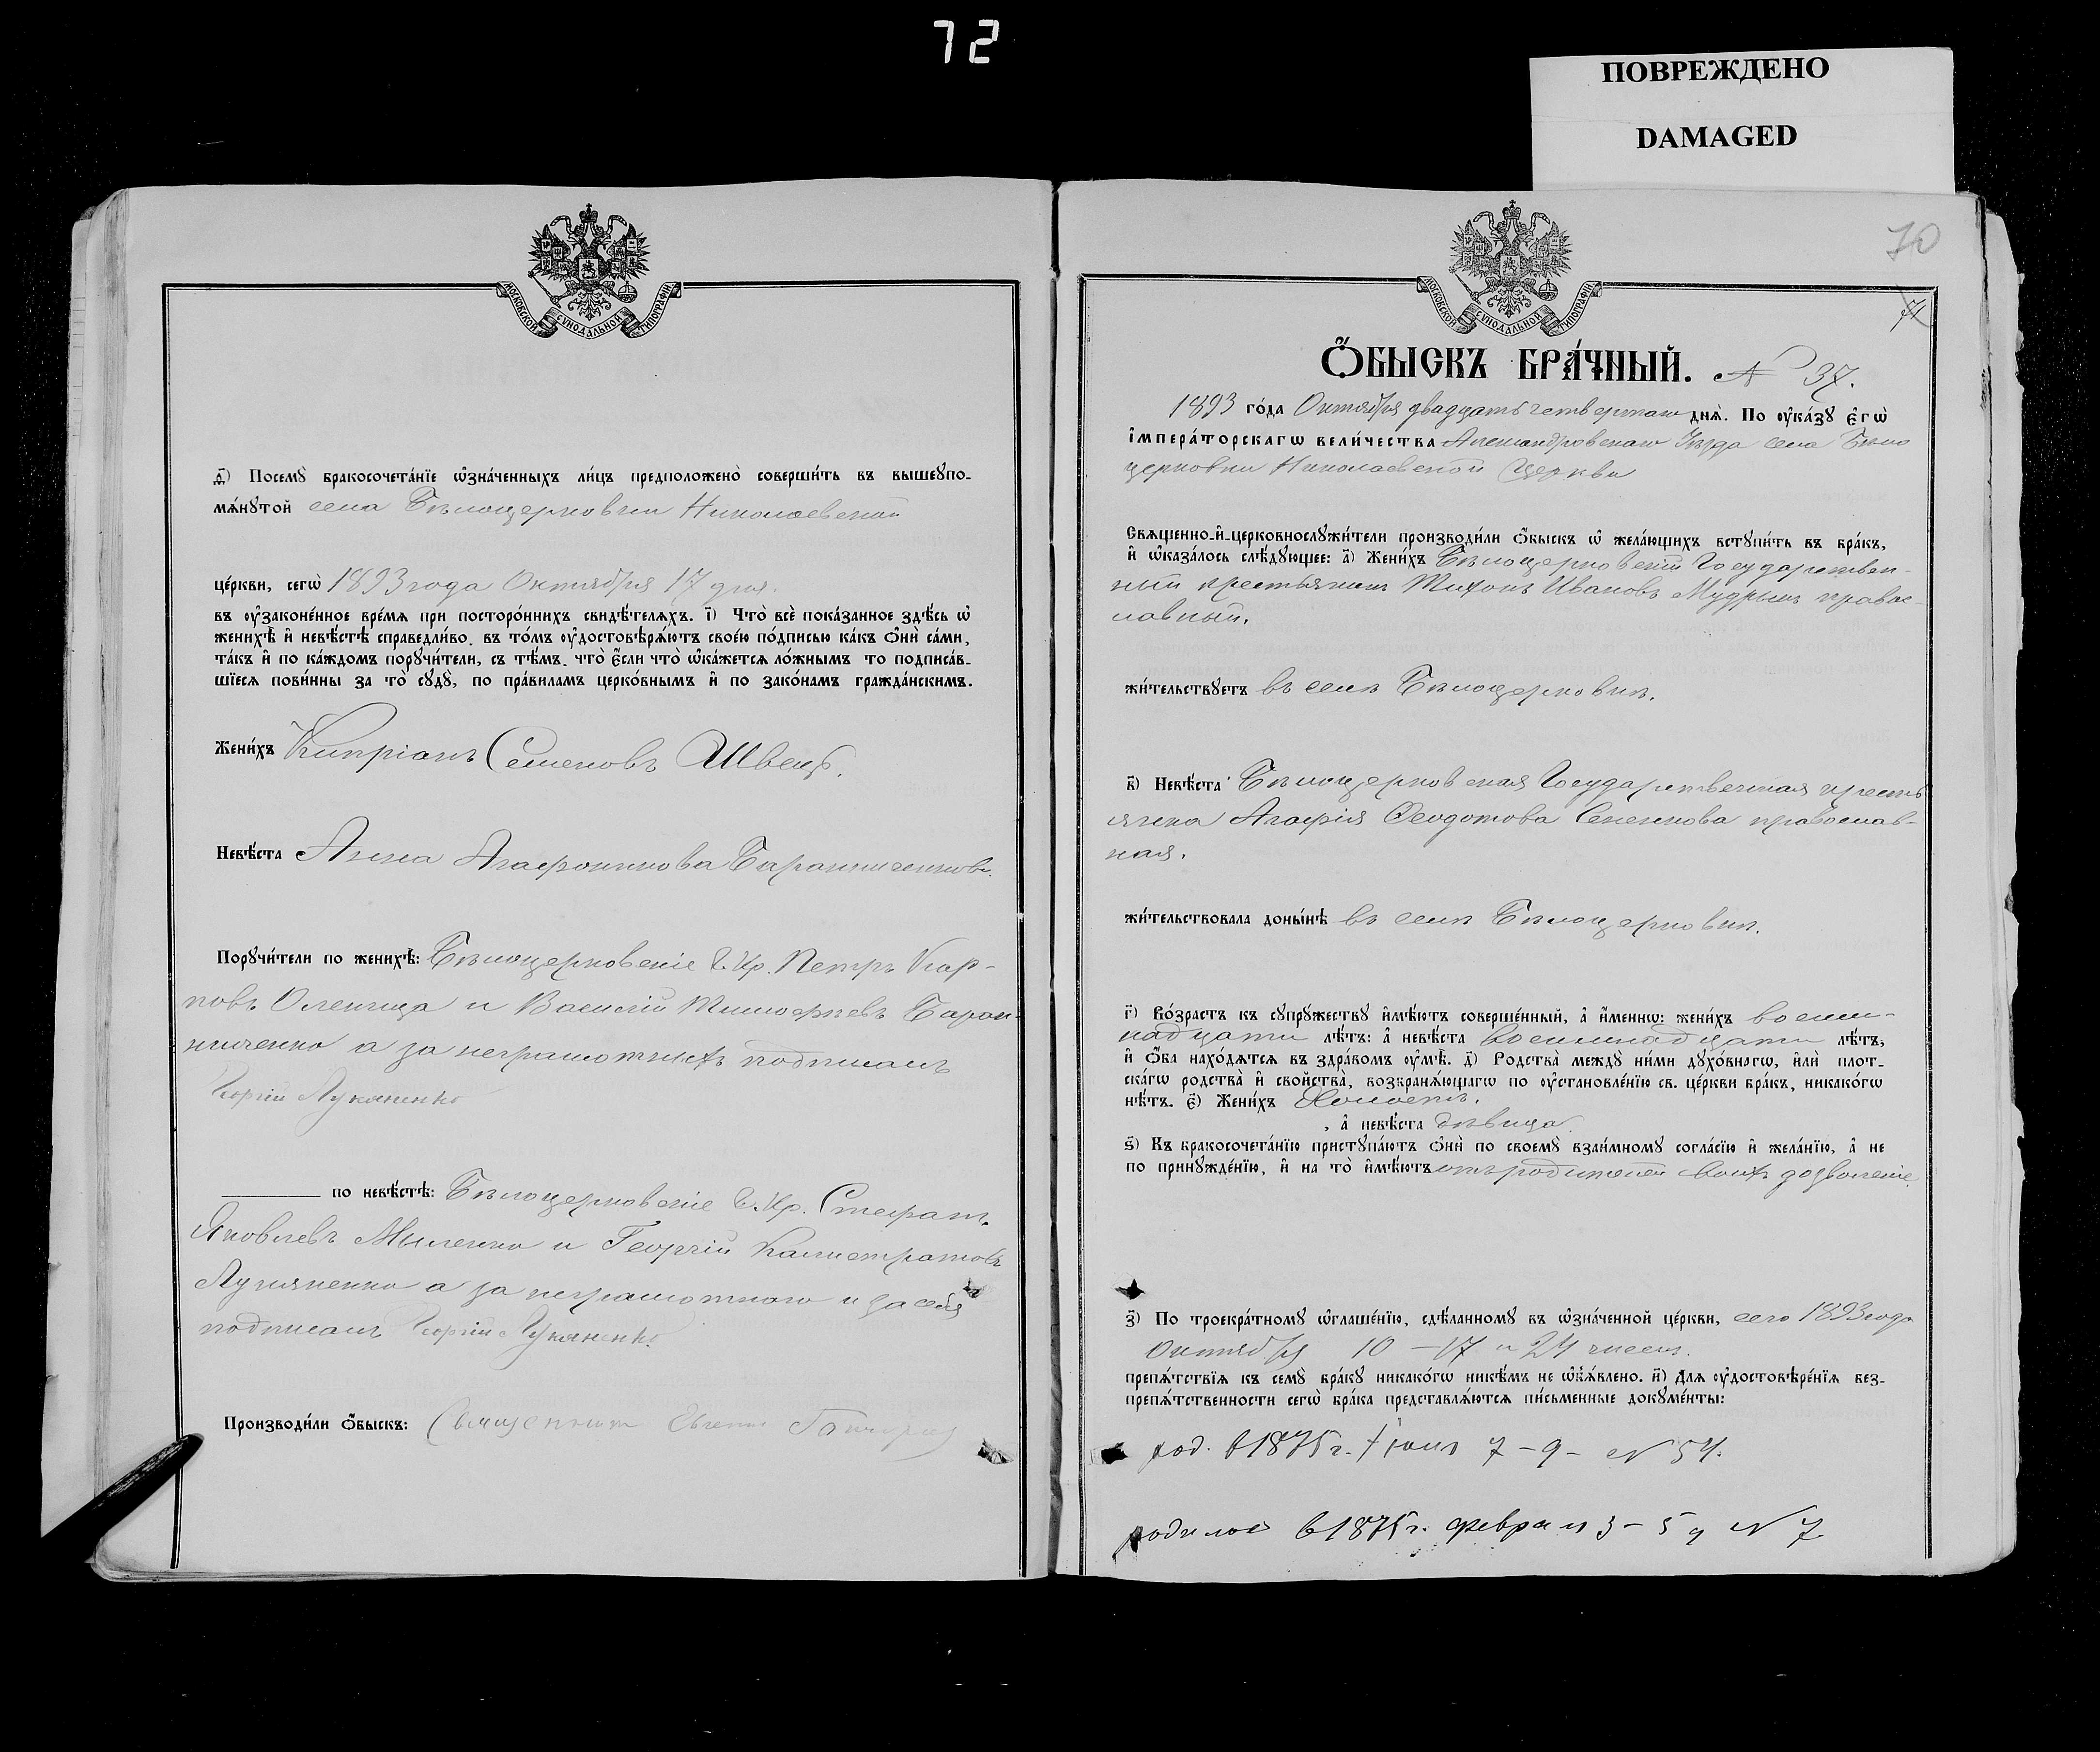 72
ПОВРЕЖДЕНО
DAMAGED
МОСКОВСКОЙ СѴНОДАЛЬНОЙ ТИПОГРАФІИ
ѳ҃) Посемꙋ̀ бракосочета́нїе ѡ҆зна́ченныхъ ли́цъ предположено̀ соверши́ть въ вышеꙋпо-
мѧ́нꙋтой села Бѣлоцерковки Николаевской
це́ркви, сегѡ̀ 1893 года Октября 17 дня.
въ ᲂу҆законе́нное вре́мѧ при посторо́ннихъ свидѣ́телѧхъ. і҃) Что̀ всѐ пока́занное здѣ́сь ѡ҆
женихѣ̀ и҆ невѣ́стѣ справедли́во, въ то́мъ ᲂу҆достовѣрѧ́ютъ свое́ю по́дписью ка́къ ѻ҆нѝ са́ми,
та́къ и҆ по ка́ждомъ порꙋчи́тели, съ тѣ́мъ, что̀ є҆́сли что̀ ѡ҆ка́жетсѧ ло́жнымъ то подписа́в-
шїесѧ пови́нны за то̀ сꙋдꙋ̀, по пра́виламъ церко́внымъ и҆ по зако́намъ гражда́нскимъ.
Жени́хъ Кипріанъ Семеновъ Швець.
Невѣ́ста Анна Агафоникова Бараниченкова.
Порꙋчи́тели по женихѣ̀: Бѣлоцерковскіе Г. Кр. Петръ Кар-
повъ Оленица и Василій Тимофѣевъ Баран-
ниченко а за неграмотныхъ подписалъ
Георгій Лукяненко
по невѣ́стѣ: Бѣлоцерковскіе Г. Кр. Стефанъ
Яковлевъ Мыленко и Георгій Калистратовъ
Лукяненко а за неграмотнаго и за себя
подписалъ Георгій Лукяненко.
Производи́ли ѻ҆́быскъ: Священникъ Евгений
70
71
МОСКОВСКОЙ СѴНОДАЛЬНОЙ ТИПОГРАФІИ
Ѻ҆́БЫСКЪ БРА́ЧНЫЙ. № 37.
1893 го́да Октября двадцать четвертаго днѧ̀. По ᲂу҆ка́зꙋ є҆гѡ̀
і҆мпера́торскагѡ вели́чества Александровскаго Уѣзда села Бѣло
церковки Николаевской Церкви
Свѧщенно-и҆-церковнослꙋжи́тели производи́ли ѻ҆́быскъ ѡ҆ жела́ющихъ встꙋпи́ть въ бра́къ,
и҆ ѡ҆каза́лось слѣ́дꙋющее: а҃) Жени́хъ Бѣлоцерковскій Государствен-
ный крестьянинъ Тихонъ Ивановъ Мудрыкъ правос-
лавный.
жи́тельствꙋетъ въ селѣ Бѣлоцерковкѣ.
в҃) Невѣ́ста Бѣлоцерковская Государственная кресть
янка Агафія Ѳеодотова Сененкова православ-
ная.
жи́тельствовала доны́нѣ въ селѣ Бѣлоцерковкѣ.
г҃) Во́зрастъ къ сꙋпрꙋ́жествꙋ и҆мѣ́ютъ соверше́нный, а҆ и҆́меннѡ: жени́хъ восем-
надцати лѣ́тъ: а҆ невѣ́ста восемнадцати лѣ́тъ,
и҆ ѻ҆́ба нахо́дѧтсѧ въ здра́вомъ ᲂу҆мѣ̀. д҃) Родства̀ междꙋ̀ ни́ми дꙋхо́внагѡ, и҆лѝ плот-
ска́гѡ родства̀ и҆ сво́йства, возбранѧ́ющагѡ по ᲂу҆становле́нїю св. це́ркви бра́къ, никако́гѡ
нѣ́тъ. є҃) Жени́хъ Холостъ.
, а҆ невѣ́ста дѣвица.
ѕ҃) Къ бракосочета́нїю пристꙋпа́ютъ ѻ҆нѝ по своемꙋ̀ взаи́мномꙋ согла́сїю и҆ жела́нїю, а҆ не
по принꙋжде́нїю, и҆ на то̀ и҆мѣ́ютъ отъ родителей своихъ дозволеніе.
з҃) По троекра́тномꙋ ѡ҆глаше́нїю, сдѣ́ланномꙋ въ ѡ҆зна́ченной це́ркви, сего 1893 года
Октября 10 - 17 и 24 чиселъ.
препѧ́тствїѧ къ семꙋ̀ бра́кꙋ никако́гѡ никѣ́мъ не ѡ҆б̾ѧ́влено. и҃) Длѧ ᲂу҆достовѣре́нїѧ без-
препѧ́тственности сегѡ̀ бра́ка представлѧ́ютсѧ пи́сьменные докꙋме́нты:
род. в 1875 г. Іюня 7 - 9 - № 54.
родилась в 1875 г. февраля 3 - 5 № 7